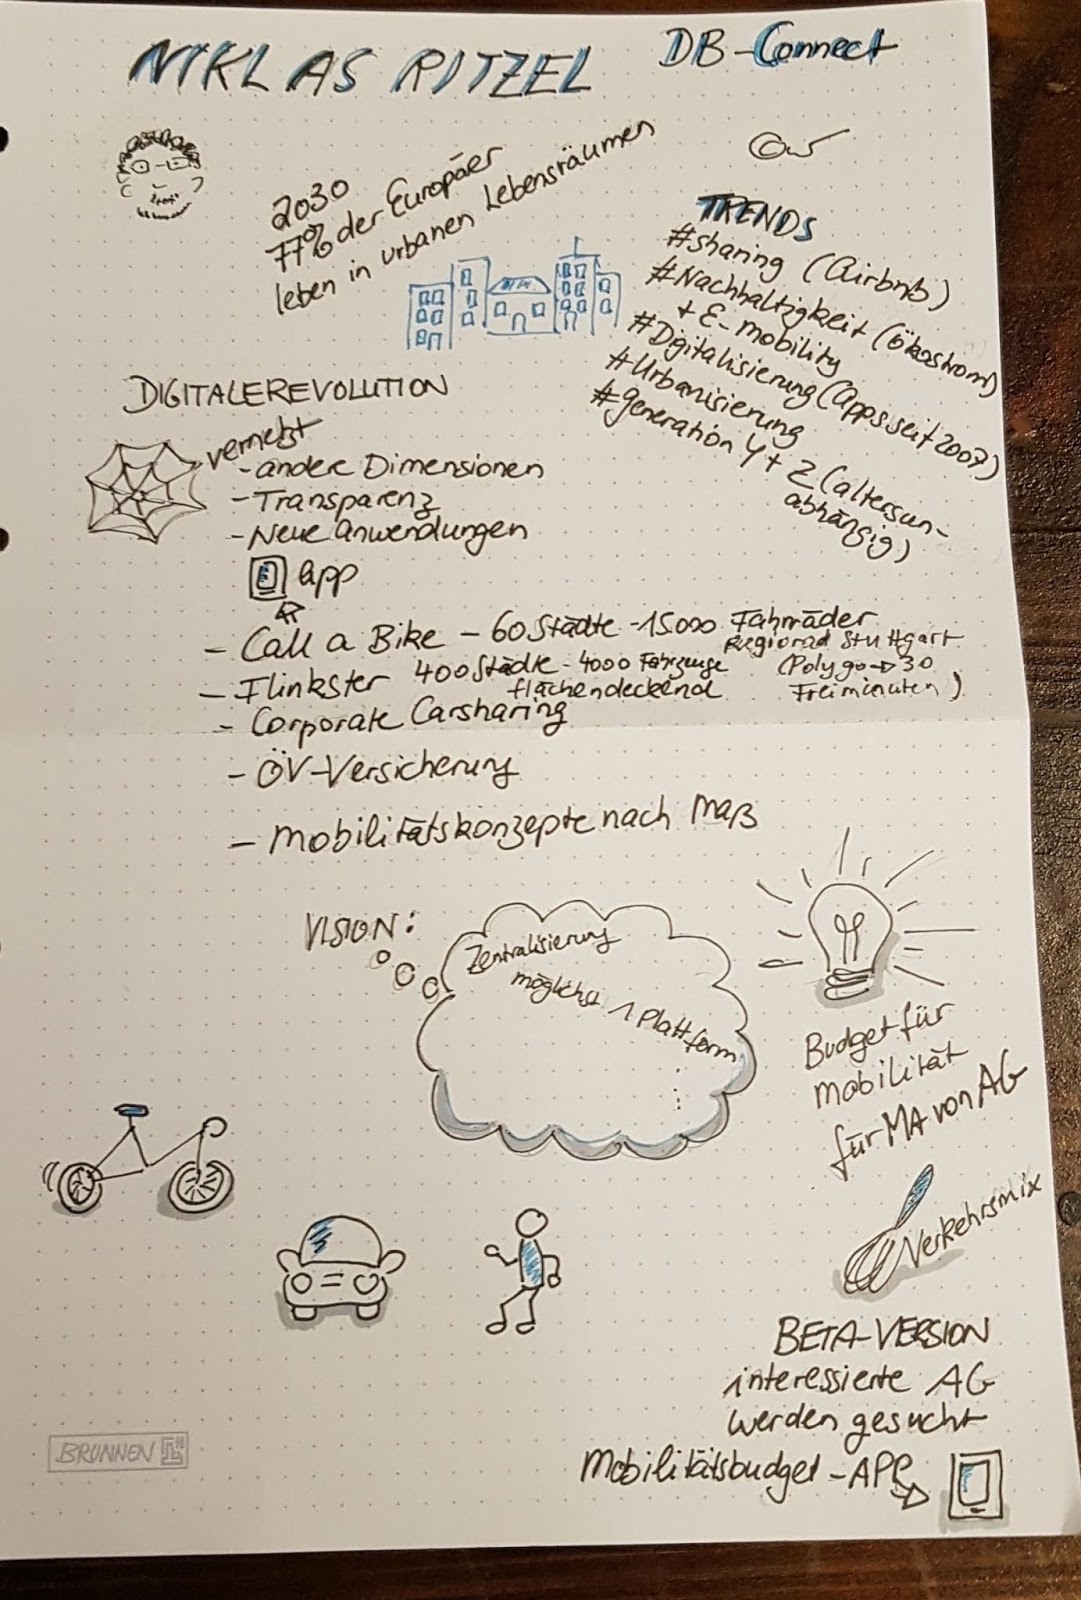 NIKLAS RITZEL
DB-Connect
2030
77% der Europäer
leben in urbanen Lebensräumen
TRENDS
#sharing (Airbnb)
#Nachhaltigkeit (Ökostrom)
+ E-mobility
#Digitalisierung (Apps seit 2007)
#Urbanisierung
#generation Y + Z (altersun-
abhängig)
DIGITALEREVOLUTION
vernetzt
- andere Dimensionen
- Transparenz
- Neue Anwendungen
App
- Call a Bike - 60 Städte - 15.000 Fahrräder
Regiorad Stuttgart
(Polygo → 30
Freiminuten)
- Flinkster 400 Städte - 4000 Fahrzeuge
flächendeckend
- Corporate Carsharing
- ÖV-Versicherung
- Mobilitätskonzepte nach Maß
VISION:
Zentralisierung
möglichst 1 Plattform
...
Budget für
Mobilität
für MA von AG
Verkehrsmix
BETA-VERSION
interessierte AG
werden gesucht
Mobilitätsbudget - APP
BRUNNEN